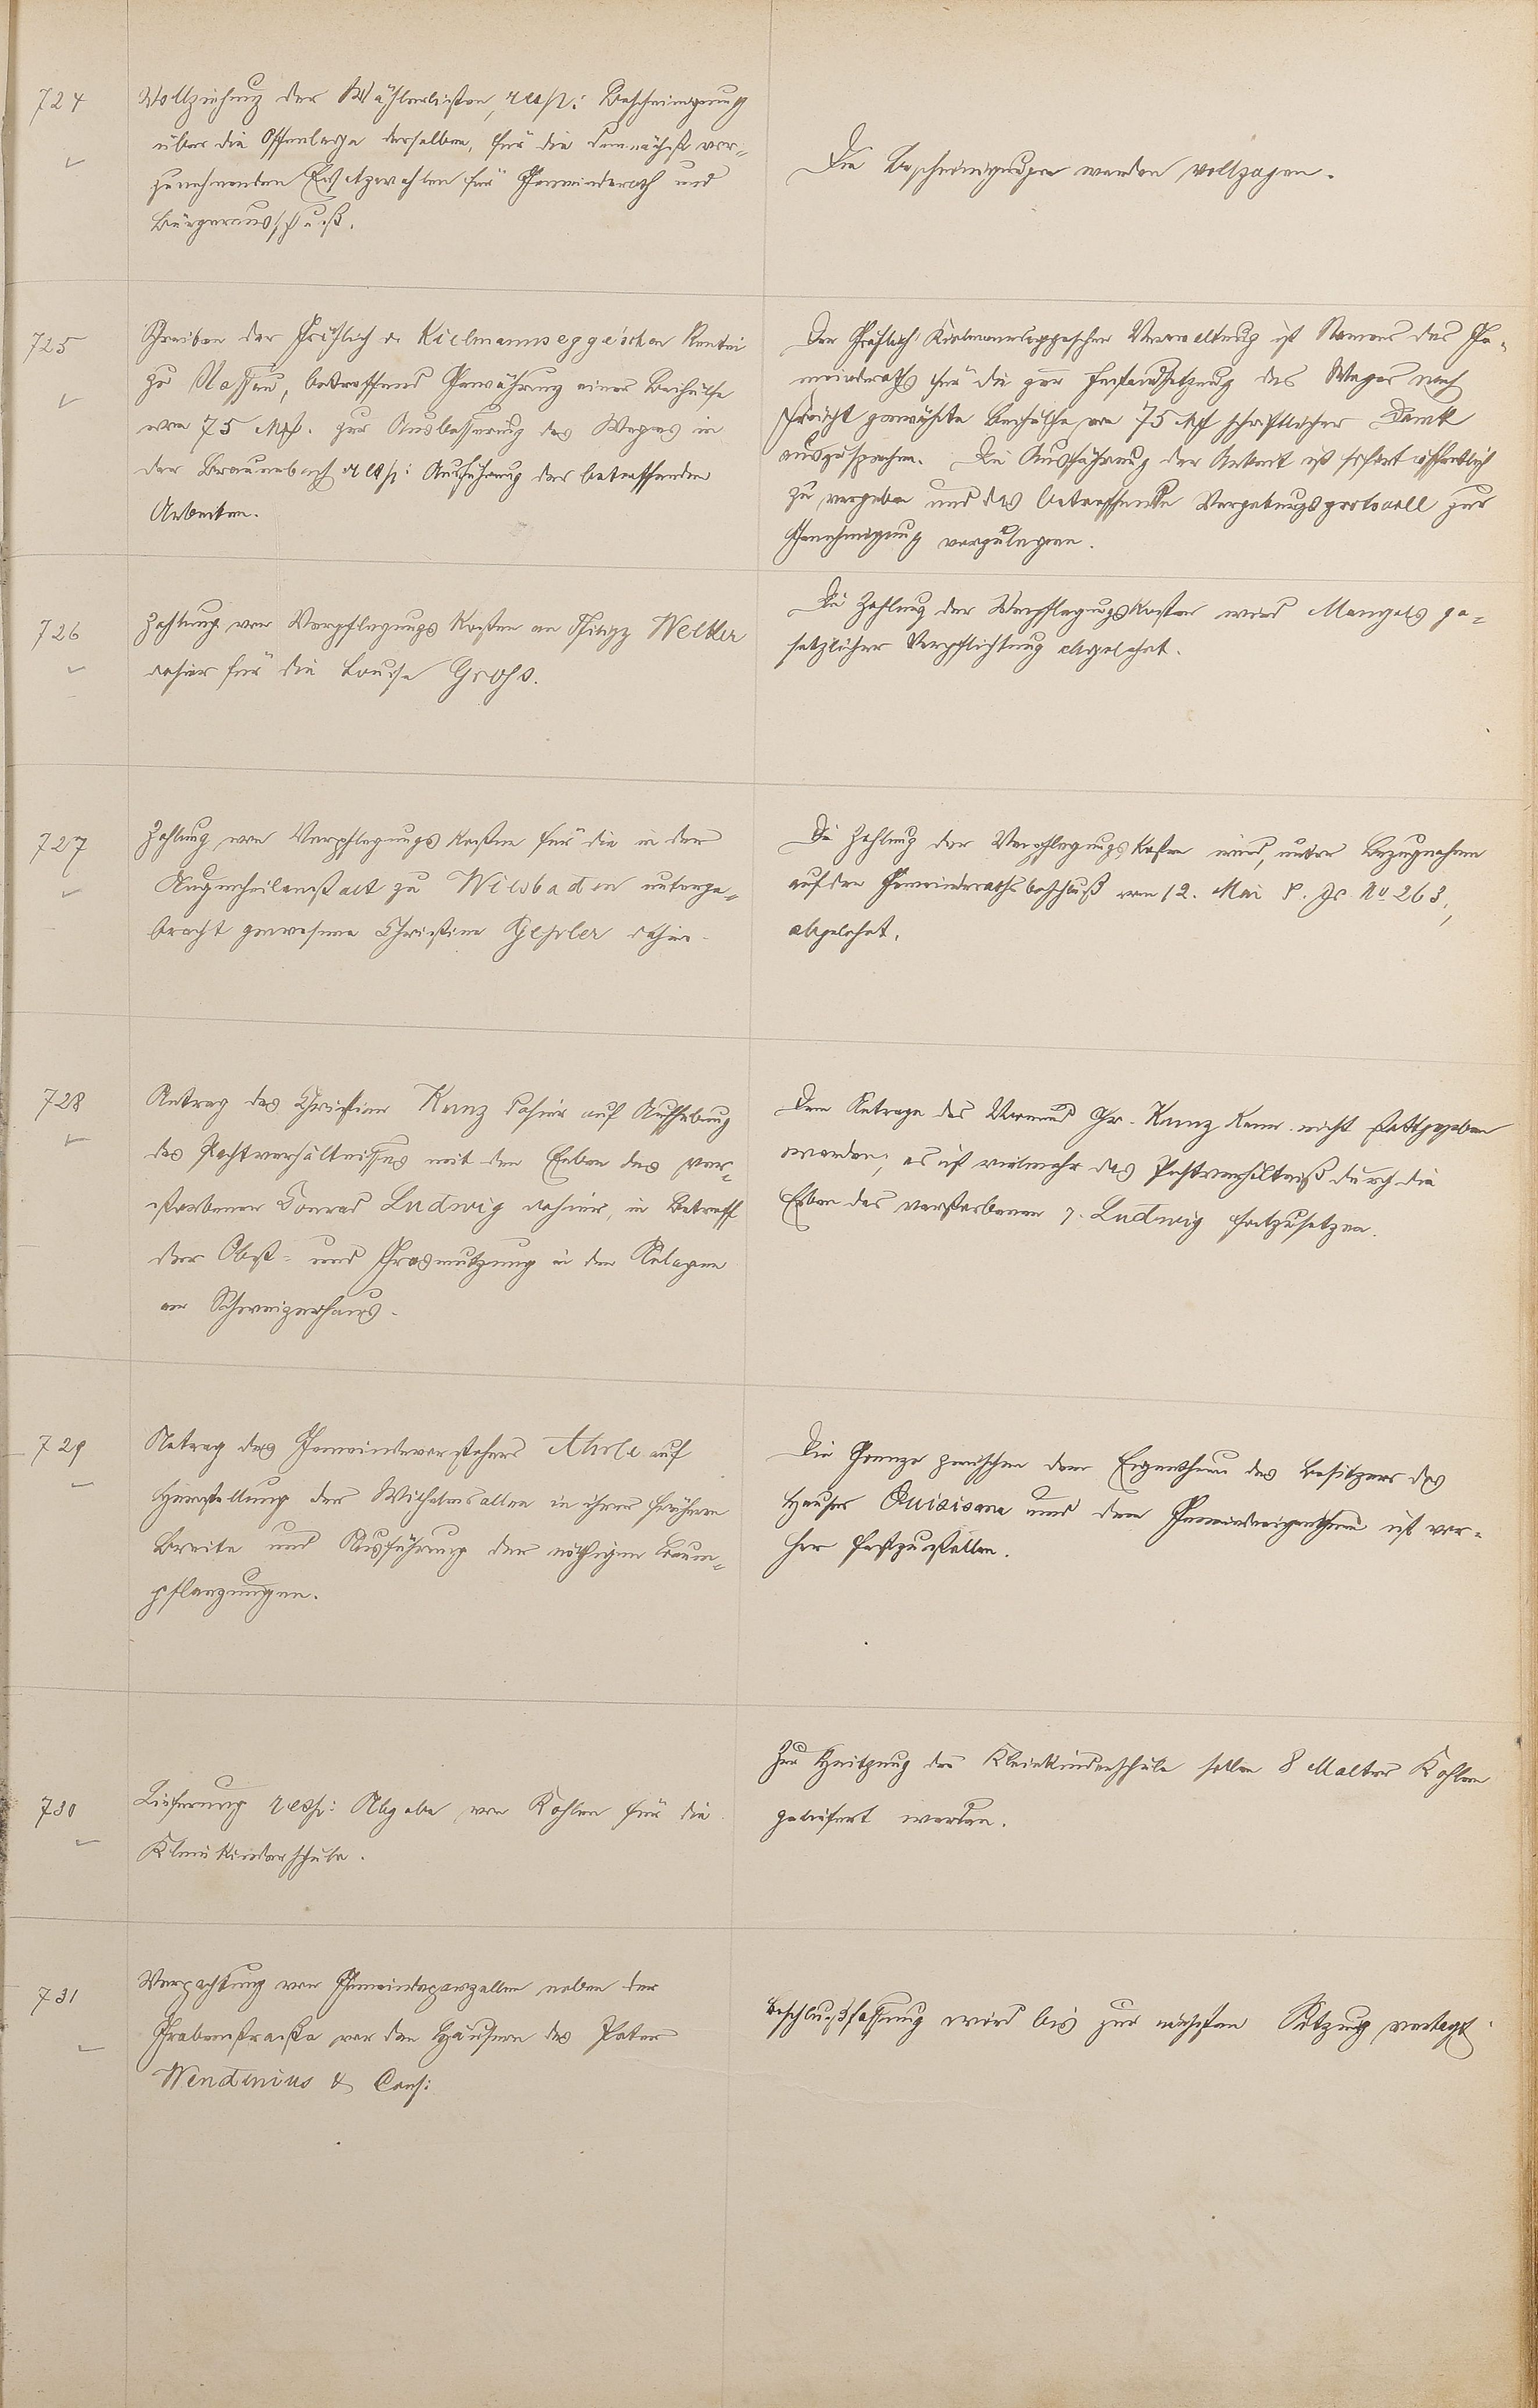 724
Vollziehung der Wählerlisten, resp: Bescheinigung
über die Offenlage derselben, für die demnächst vor-
zunehmenden Ersatzwahlen für Gemeinderath und
Bürgerausschuß.
Die Bescheinigungen werden vollzogen.
725
Schreiben der Gräflich v. Kielmannsegge'schen Rentei
zu Nassau, betreffend Gewährung einer Beihülfe
von 75 Mk. zur Ausbesserung des Weges in
der Braunebach resp: Ausführung der betreffenden
Arbeiten.
Der Gräflich Kielmannseggeschen Verwaltung ist Namens des Ge-
meinderaths für die zur Instandsetzung des Weges nach
gewährte Beihülfe von 75 Mk schriftlicher Dank
auszusprechen. Die Ausführung der Arbeit ist sofort öffentlich
zu vergeben und das betreffende Vergebungsprotocoll zur
Genehmigung vorzulegen.
726
Zahlung von Verpflegungskosten an Philipp Welker
dahier für die Louise Groß.
Die Zahlung der Verpflegungskosten wird Mangels ge-
setzlicher Verpflichtung abgelehnt.
727
Zahlung von Verpflegungskosten für die in der
Augenheilanstalt zu Wiesbaden unterge-
bracht gewesene Christine Gessler dahier.
Die Zahlung der Verpflegungskosten wird, unter Bezugnahme
auf den Gemeinderathsbeschluß vom 12. Mai d. Js. No 263,
abgelehnt.
728
Antrag des Christian Kunz dahier auf Aufhebung
des Pachtverhältnisses mit den Erben des ver-
storbenen Conrad Ludwig dahier, in Betreff
der Obst- und Grasnutzung in den Anlagen
am Schweizerhaus.
Dem Antrage des Chr. Kunz kann nicht stattgegeben
werden; es ist vielmehr das Pachtverhältniß durch die
Erben des verstorbenen Ludwig fortzusetzen.
729
Antrag des Gemeindevorstehers auf
Herstellung der Wilhelmsallee in ihrer früheren
Breite und Ausführung der nöthigen Baum-
pflanzungen.
Die Grenze zwischen dem Eigenthum des Besitzers des
Hauses Quisisana und dem Gemeindeeigenthum ist vor-
her festzustellen.
730
Lieferung resp: Abgabe von Kohlen für die
Kleinkinderschule.
Zur Heitzung der Kleinkinderschule sollen 8 Malter Kohlen
geliefert werden.
731
Verpachtung von Gemeindeparzellen neben der
Grabenstraße vor den Häusern des Peter
Wendenius & Cons:
Beschlußfassung wird bis zur nächsten Sitzung vertagt.